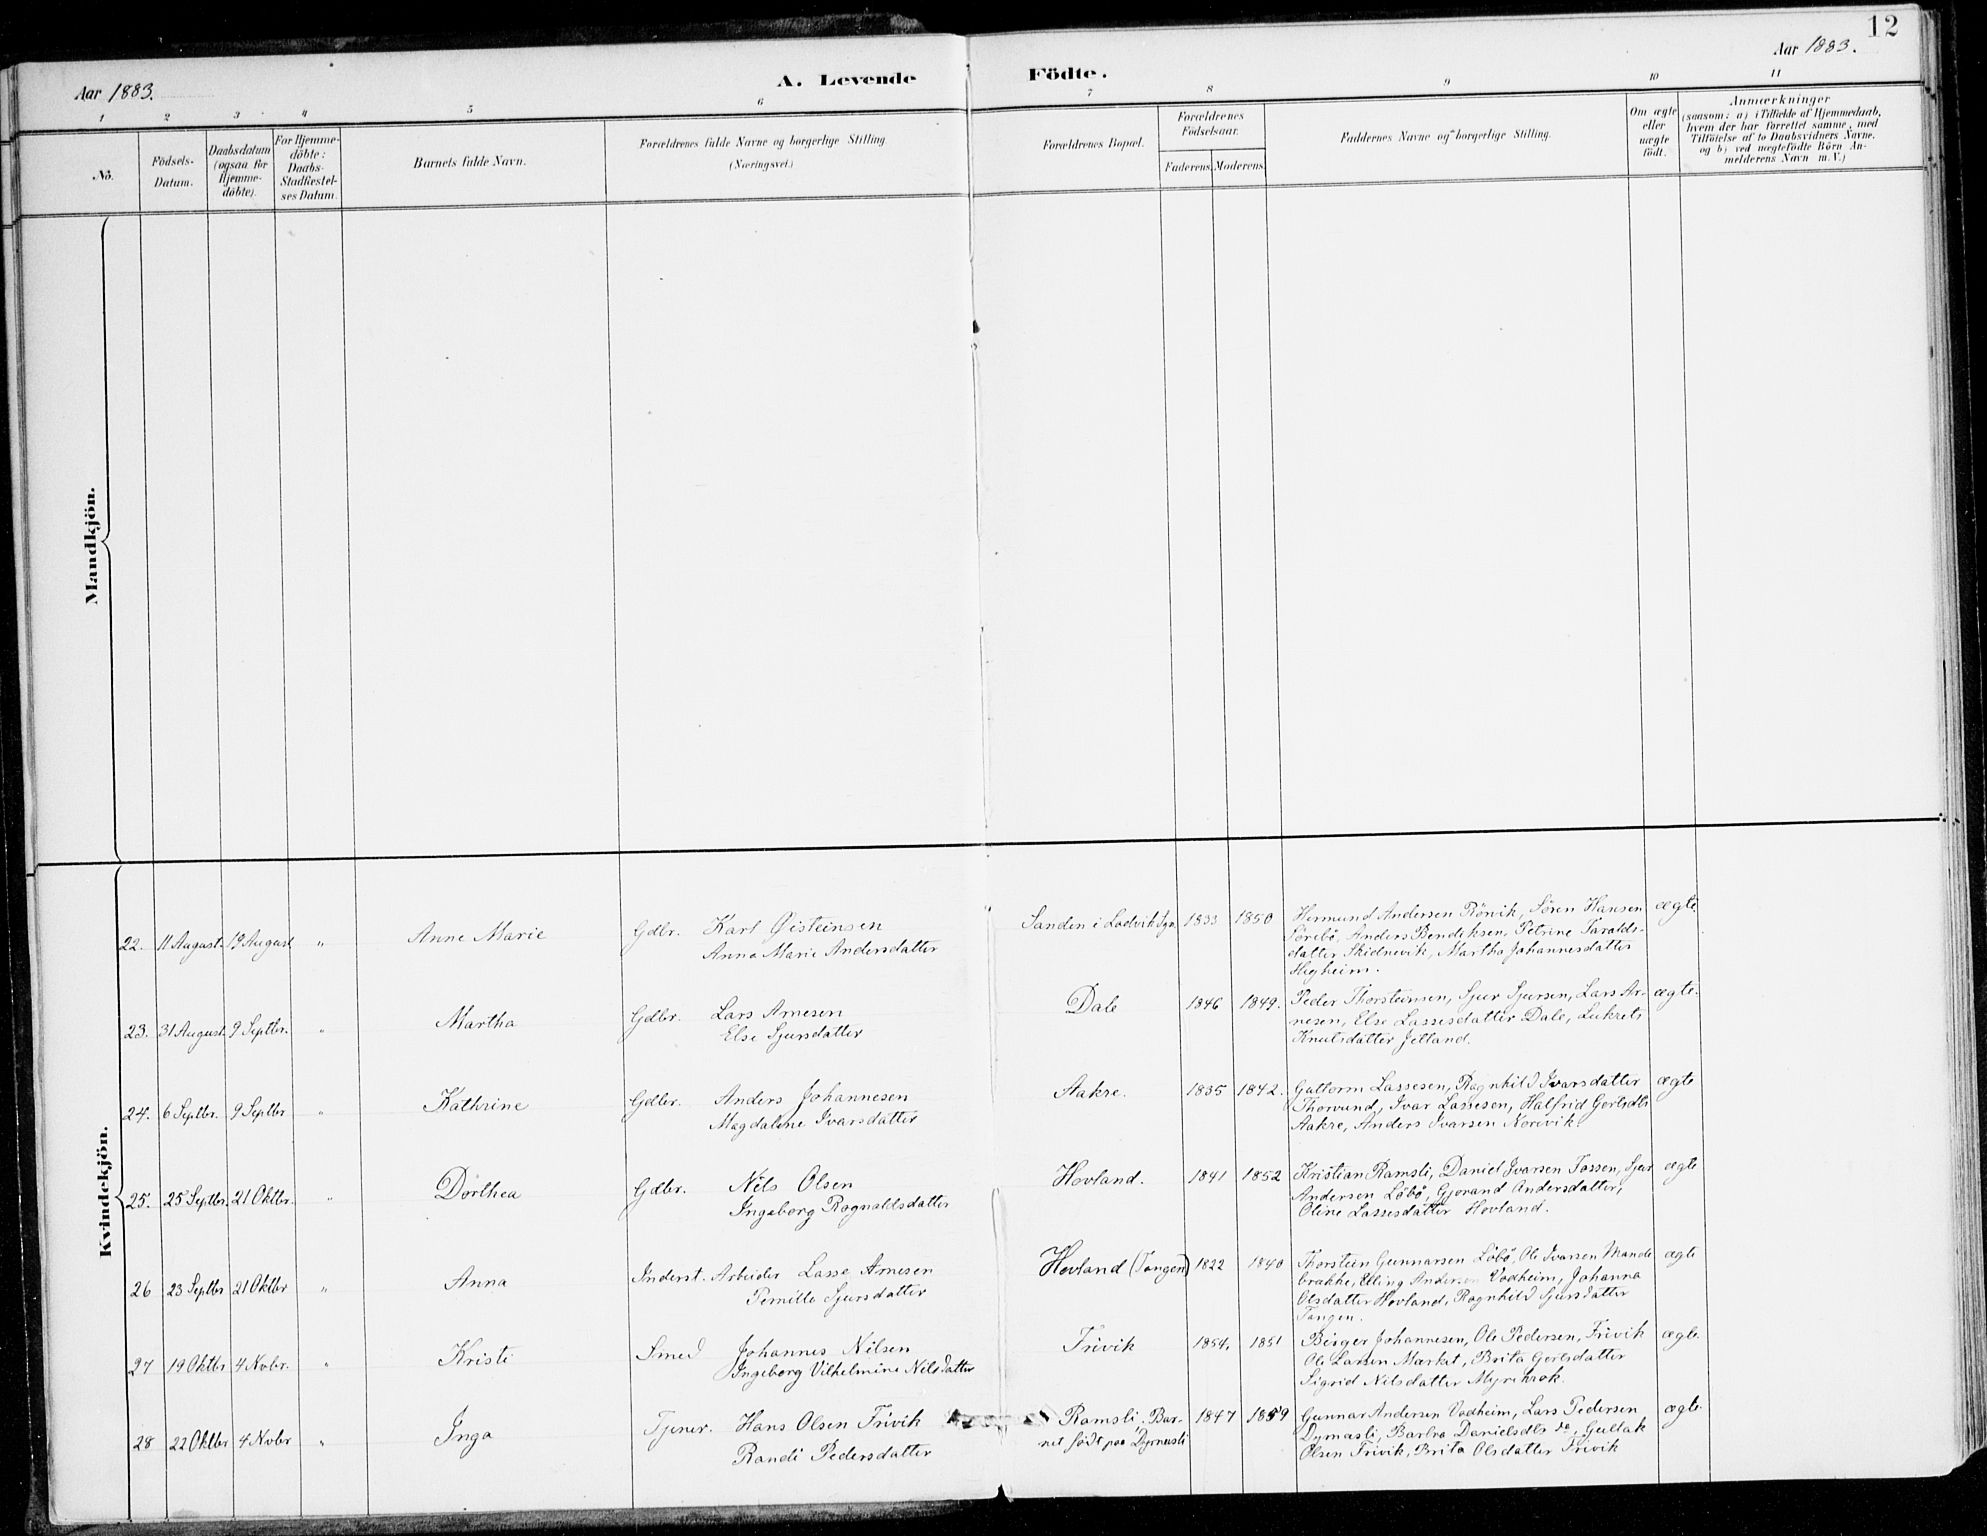 12
Aar 1883.
A. Levende Födte.
Aar 1883.
1 2 3 4 5 6 7 8 9 10 11
No.
Födsels-Datum.
Daabsdatum (ogsaa for Hjemmedöbte).
For Hjemmedöbte: Daabs-Stadfæstelses Datum.
Barnets fulde Navn.
Forældrenes fulde Navne og borgerlige Stilling
(Næringsvei.)
Forældrenes Bopæl.
Forældrenes Födselsaar.
Faderens. Moderens.
Faddernes Navne og borgerlige Stilling.
Om ægte eller uægte födt.
Anmærkninger
(saasom: a) i Tilfælde af Hjemmedaab,
hvem der har forrettet samme, med
Tilföielse af to Daabsvidners Navne,
og b) ved uægtefödte Börn An-
melderens Navn m. V.)
Mandkjön.
Kvindekjön.
22. 11 August. 19 August " Anne Marie Gdbr. Karl Øisteinsen Sanden i Ladvik Sgn. 1833 1850 Hermund Andersen Rörvik, Sören Hansen ægte.
Anna Marie Andersdatter Sörebö, Anders Bendiksen, Petrine Taralds-
datter Skidnevik, Martha Johannesdatter
Higheim.
23. 31 August 9 Septbr. " Martha Gdbr. Lars Arnesen Dale 1846 1849. Peder Thorsteinsen, Sjur Sjursen, Lars Ar- ægte.
Else Sjursdatter nesen, Else Lassesdatter Dale, Lukrets
Knutsdatter Jetland.
24. 6 Septbr. 9 Septbr " Kathrine Gdbr. Anders Johannesen Aakre. 1835 1842. Guttorm Lassesen, Ragnhild Ivarsdatter ægte
Magdalene Ivarsdatter Thorvund, Ivar Lassesen, Halfrid Gertsdtr
Aakre, Anders Ivarsen Norevik
25. 25 Septbr. 21 Oktbr. " Dorthea Gdbr. Nils Olsen Hovland. 1841 1852 Kristian Ramsli, Daniel Ivarsen Tossen, Sjur ægte
Ingeborg Ragnaldsdatter Andersen Löbö, Gjorand Andersdatter,
Oline Lassesdatter Hovland.
26 23 Septbr 21 Oktbr " Anna Inderst. Arbeider Lasse Arnesen Hovland (Tangen) 1822 1840 Thorstein Gunnarsen Löbö, Ole Ivarsen Mande ægte
Pernille Sjursdatter brække, Elling Andersen Vadheim, Johanna
Olsdatter Hovland, Ragnhild Sjursdatter
Tangen.
27 19 Oktbr 4 Novbr. " Kristi Smed Johannes Nilsen Trivik 1854, 1851 Birger Johannesen, Ole Pedersen, Trivik ægte.
Ingeborg Vilhelmine Nilsdatter Ole Larsen Mærket, Brita Gertsdatter
Sigrid Nilsdatter Myrekrok.
28 22 Oktbr 4 Novbr " Inga Tjener. Hans Olsen Trivik Ramsli. Bar- 1847 1859 Gunnar Andersen Vadheim, Lars Pedersen ægte
Randi Pedersdatter net födt paa Dyrnesli Dyrnasli, Barbro Danielsdtr do, Gullak
Olsen Trivik, Brita Olsdatter Trivik